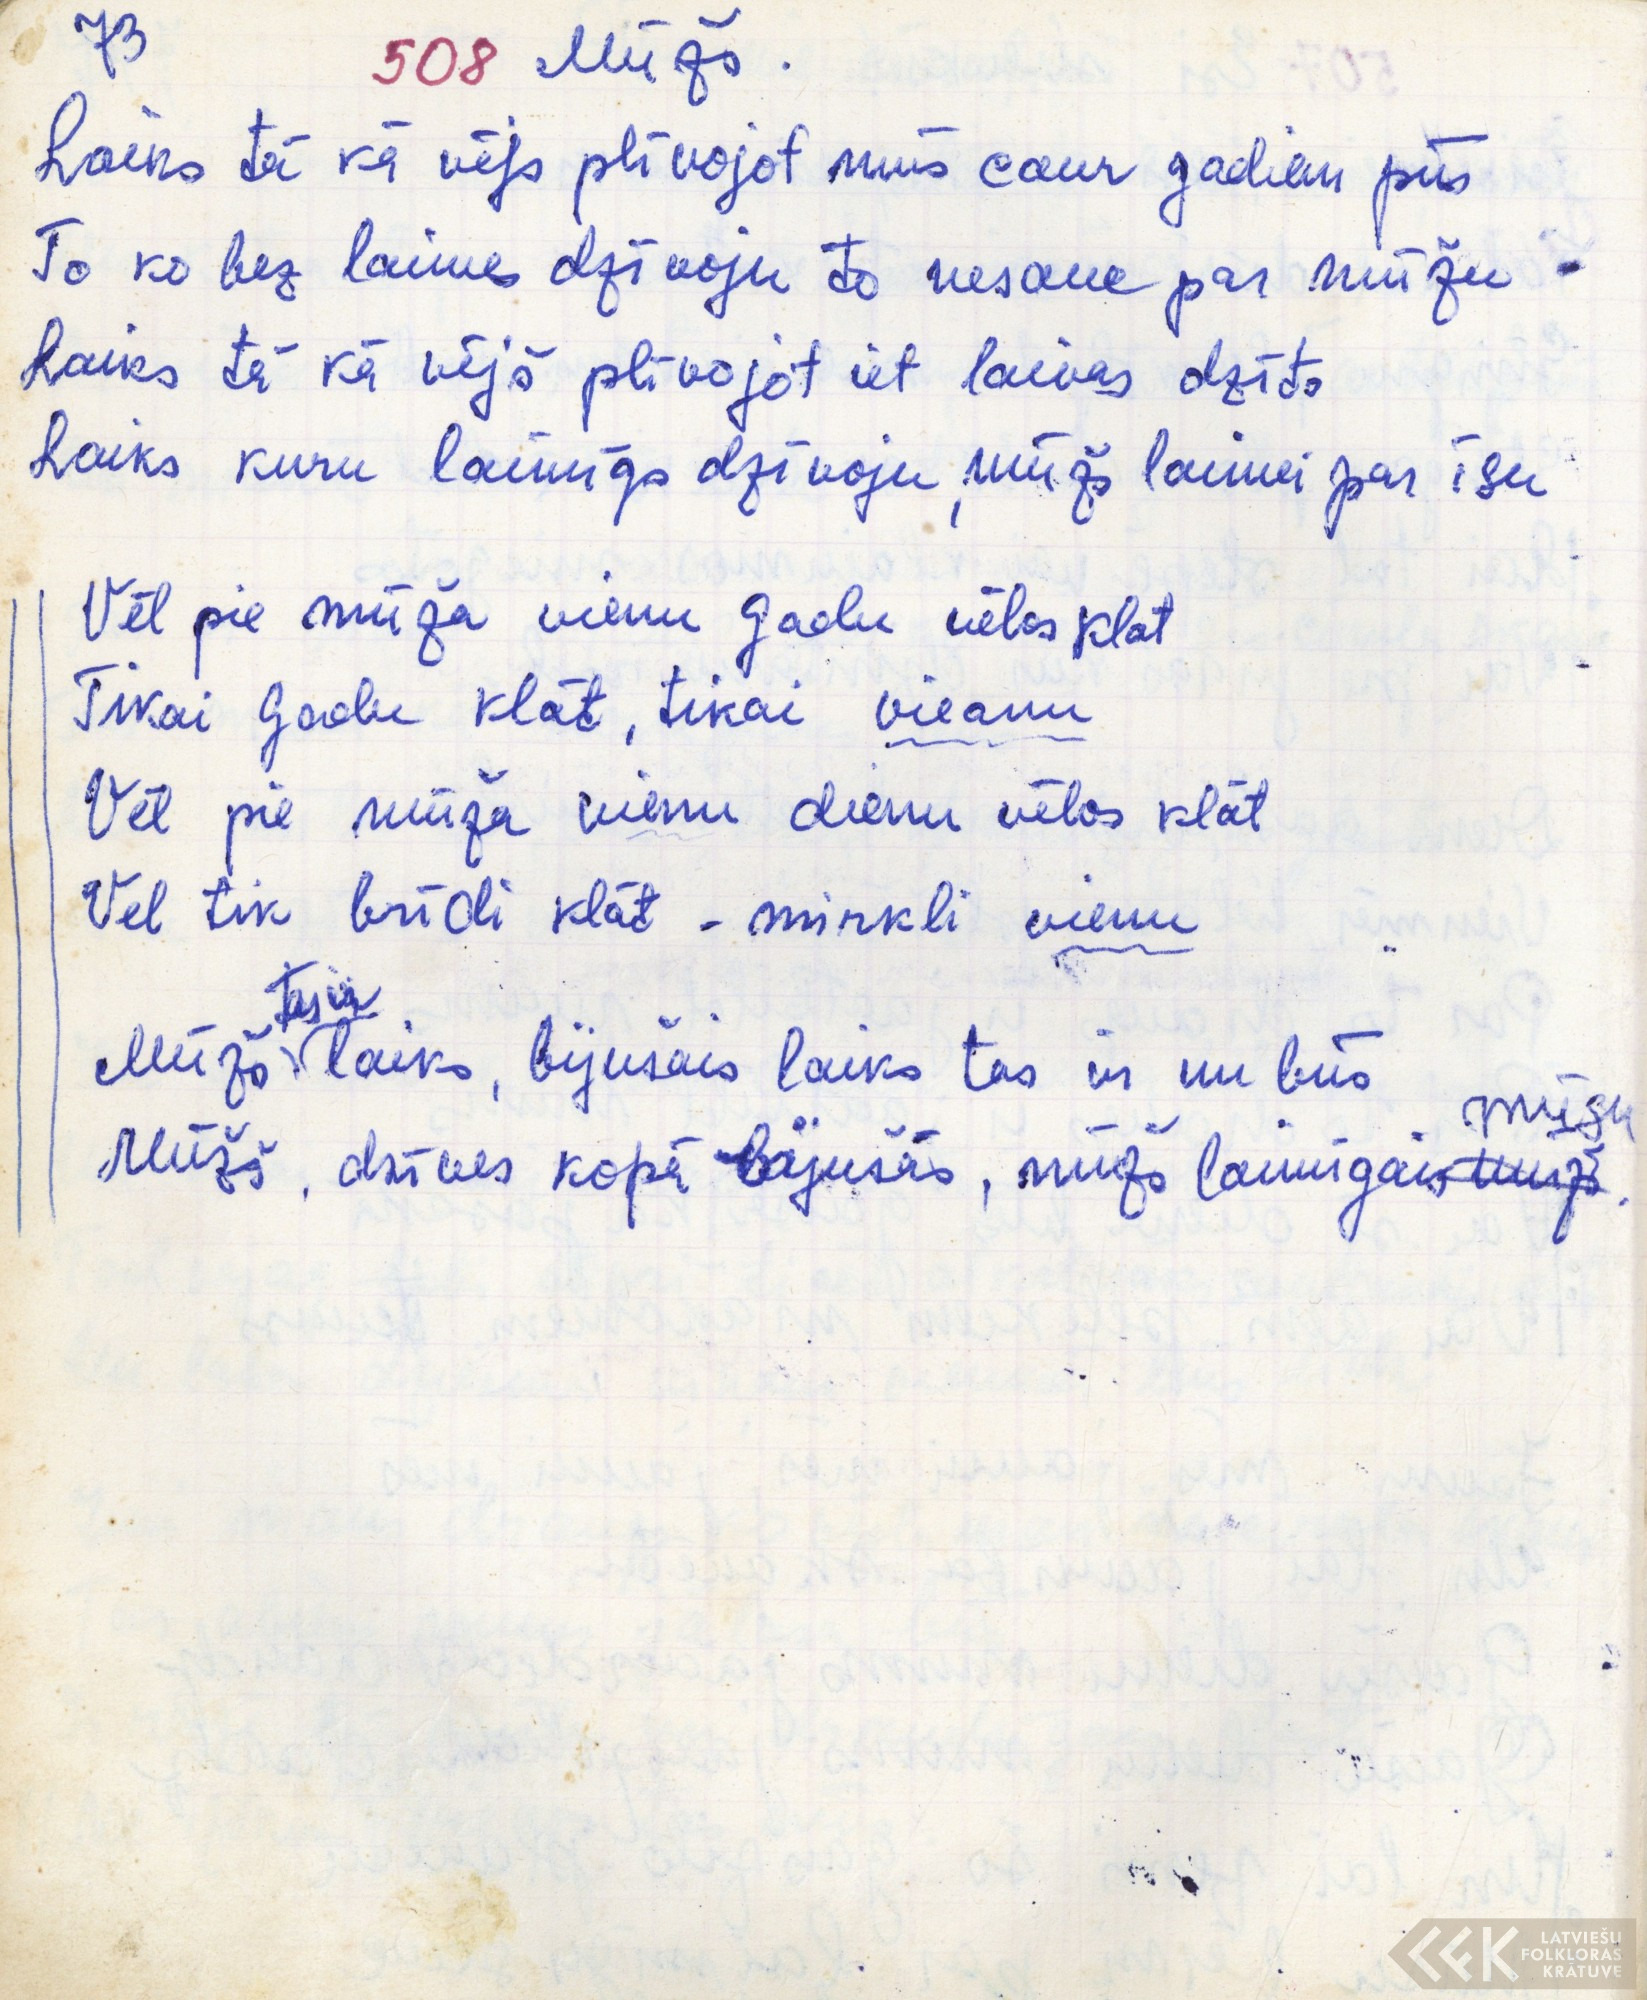 73
508 Mūžs.
Laiks tā kā vējs plīvojot mūs caur gadiem pūs
To ko bez laimes dzīvoju to nesauc par mūžu -
Laiks tā kā vējš plīvojot iet laivas dzīts
Laiks kuru laimīgs dzīvoju, mūžs laimei par īsu
Vēl pie mūža vienu gadu vēlos klāt
Tikai gadu klāt, tikai vienu
Vēl pie mūža vienu dienu vēlos klāt
Vēl tik brīdi klāt - mirkli vienu
tas ir
Mūžs laiks, bijušais laiks tas ir un būs
mūsu
Mūžs, dzīves kopā bijušās, mūžs laimīgais mūžs.
LATVIEŠU
FOLKLORAS
KRĀTUVE